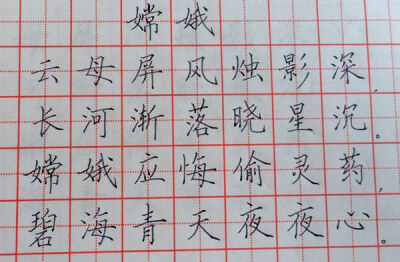 嫦娥
云母屏风烛影深,
长河渐落晓星沉。
嫦娥应悔偷灵药,
碧海青天夜夜心。